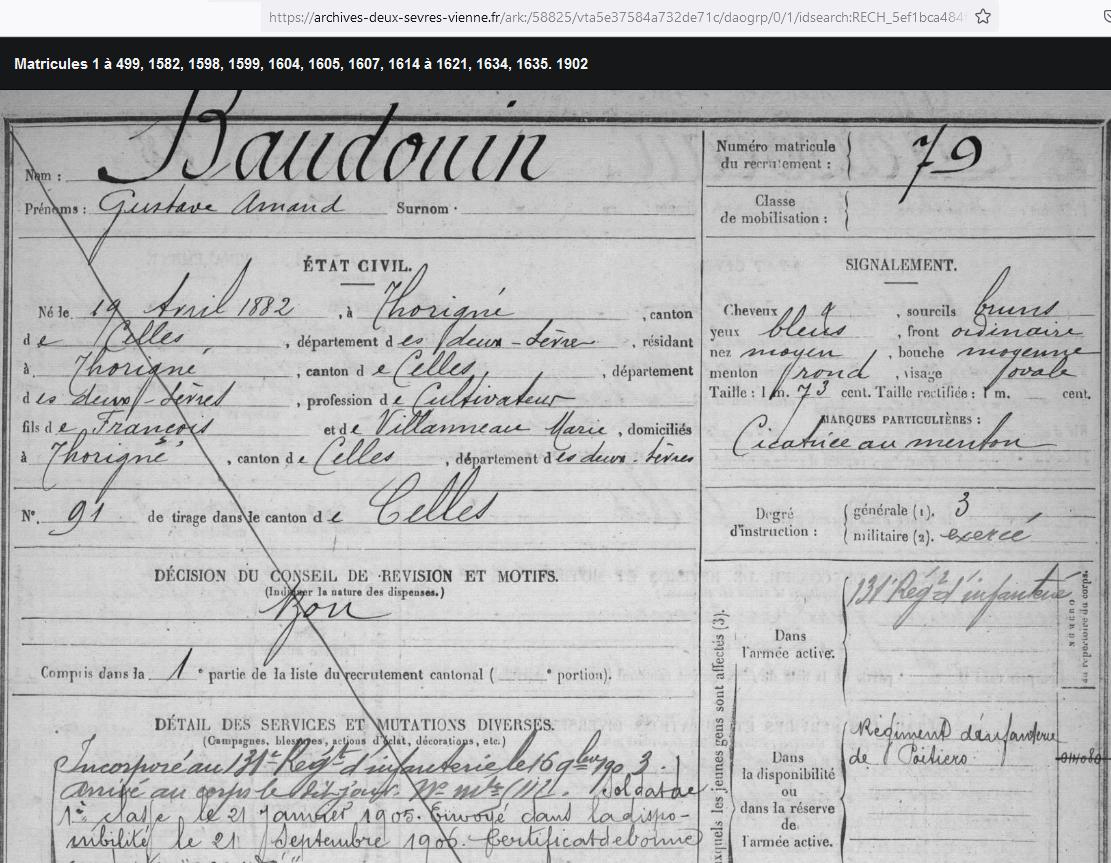 https://archives-deux-sevres-vienne.fr/ark:/58825/vta5e37584a732de71c/daogrp/0/1/idsearch:RECH_5ef1bca484
Matricules 1 à 499, 1582, 1598, 1599, 1604, 1605, 1607, 1614 à 1621, 1634, 1635. 1902
Nom : Baudouin
Prénoms : Gustave Amand Surnom ·
ÉTAT CIVIL.
Né le 19 Avril 1882, à Thorigné, canton
de Celles, département des deux-Sèvres, résidant
à Thorigné, canton de Celles, département
des deux-Sèvres, profession de Cultivateur
fils de François et de Villanneau Marie, domiciliés
à Thorigné, canton de Celles, département des deux-Sèvres
N°. 91 de tirage dans le canton de Celles
DÉCISION DU CONSEIL DE REVISION ET MOTIFS.
(Indiquer la nature des dispenses.)
Bon
Compris dans la 1e partie de la liste du recrutement cantonal ( e portion).
DÉTAIL DES SERVICES ET MUTATIONS DIVERSES.
(Campagnes, blessures, actions d'éclat, décorations, etc.)
Incorporé au 131e Régt d'infanterie le 16 9bre 1903.
Arrivé au corps le dit jour. No mle Soldat de
1re classe le 21 Janvier 1905. Envoyé dans la dispo-
nibilité le 21 Septembre 1906. Certificat de bonne
Numéro matricule
du recrutement : 79
Classe
de mobilisation :
SIGNALEMENT.
Cheveux , sourcils bruns
yeux bleus, front ordinaire
nez moyen, bouche moyenne
menton rond, visage ovale
Taille : 1 m. 73 cent. Taille rectifiée : 1 m. cent.
MARQUES PARTICULIÈRES :
Cicatrice au menton
Degré
d'instruction :
générale (1). 3
militaire (2). exercé
quels les jeunes gens sont affectés (3).
Dans
l'armée active.
131e Régt d'infanterie
NUMÉRO
au répertoire du corps.
Dans
la disponibilité
ou
dans la réserve
de
l'armée active.
Régiment d'infanterie
de Poitiers